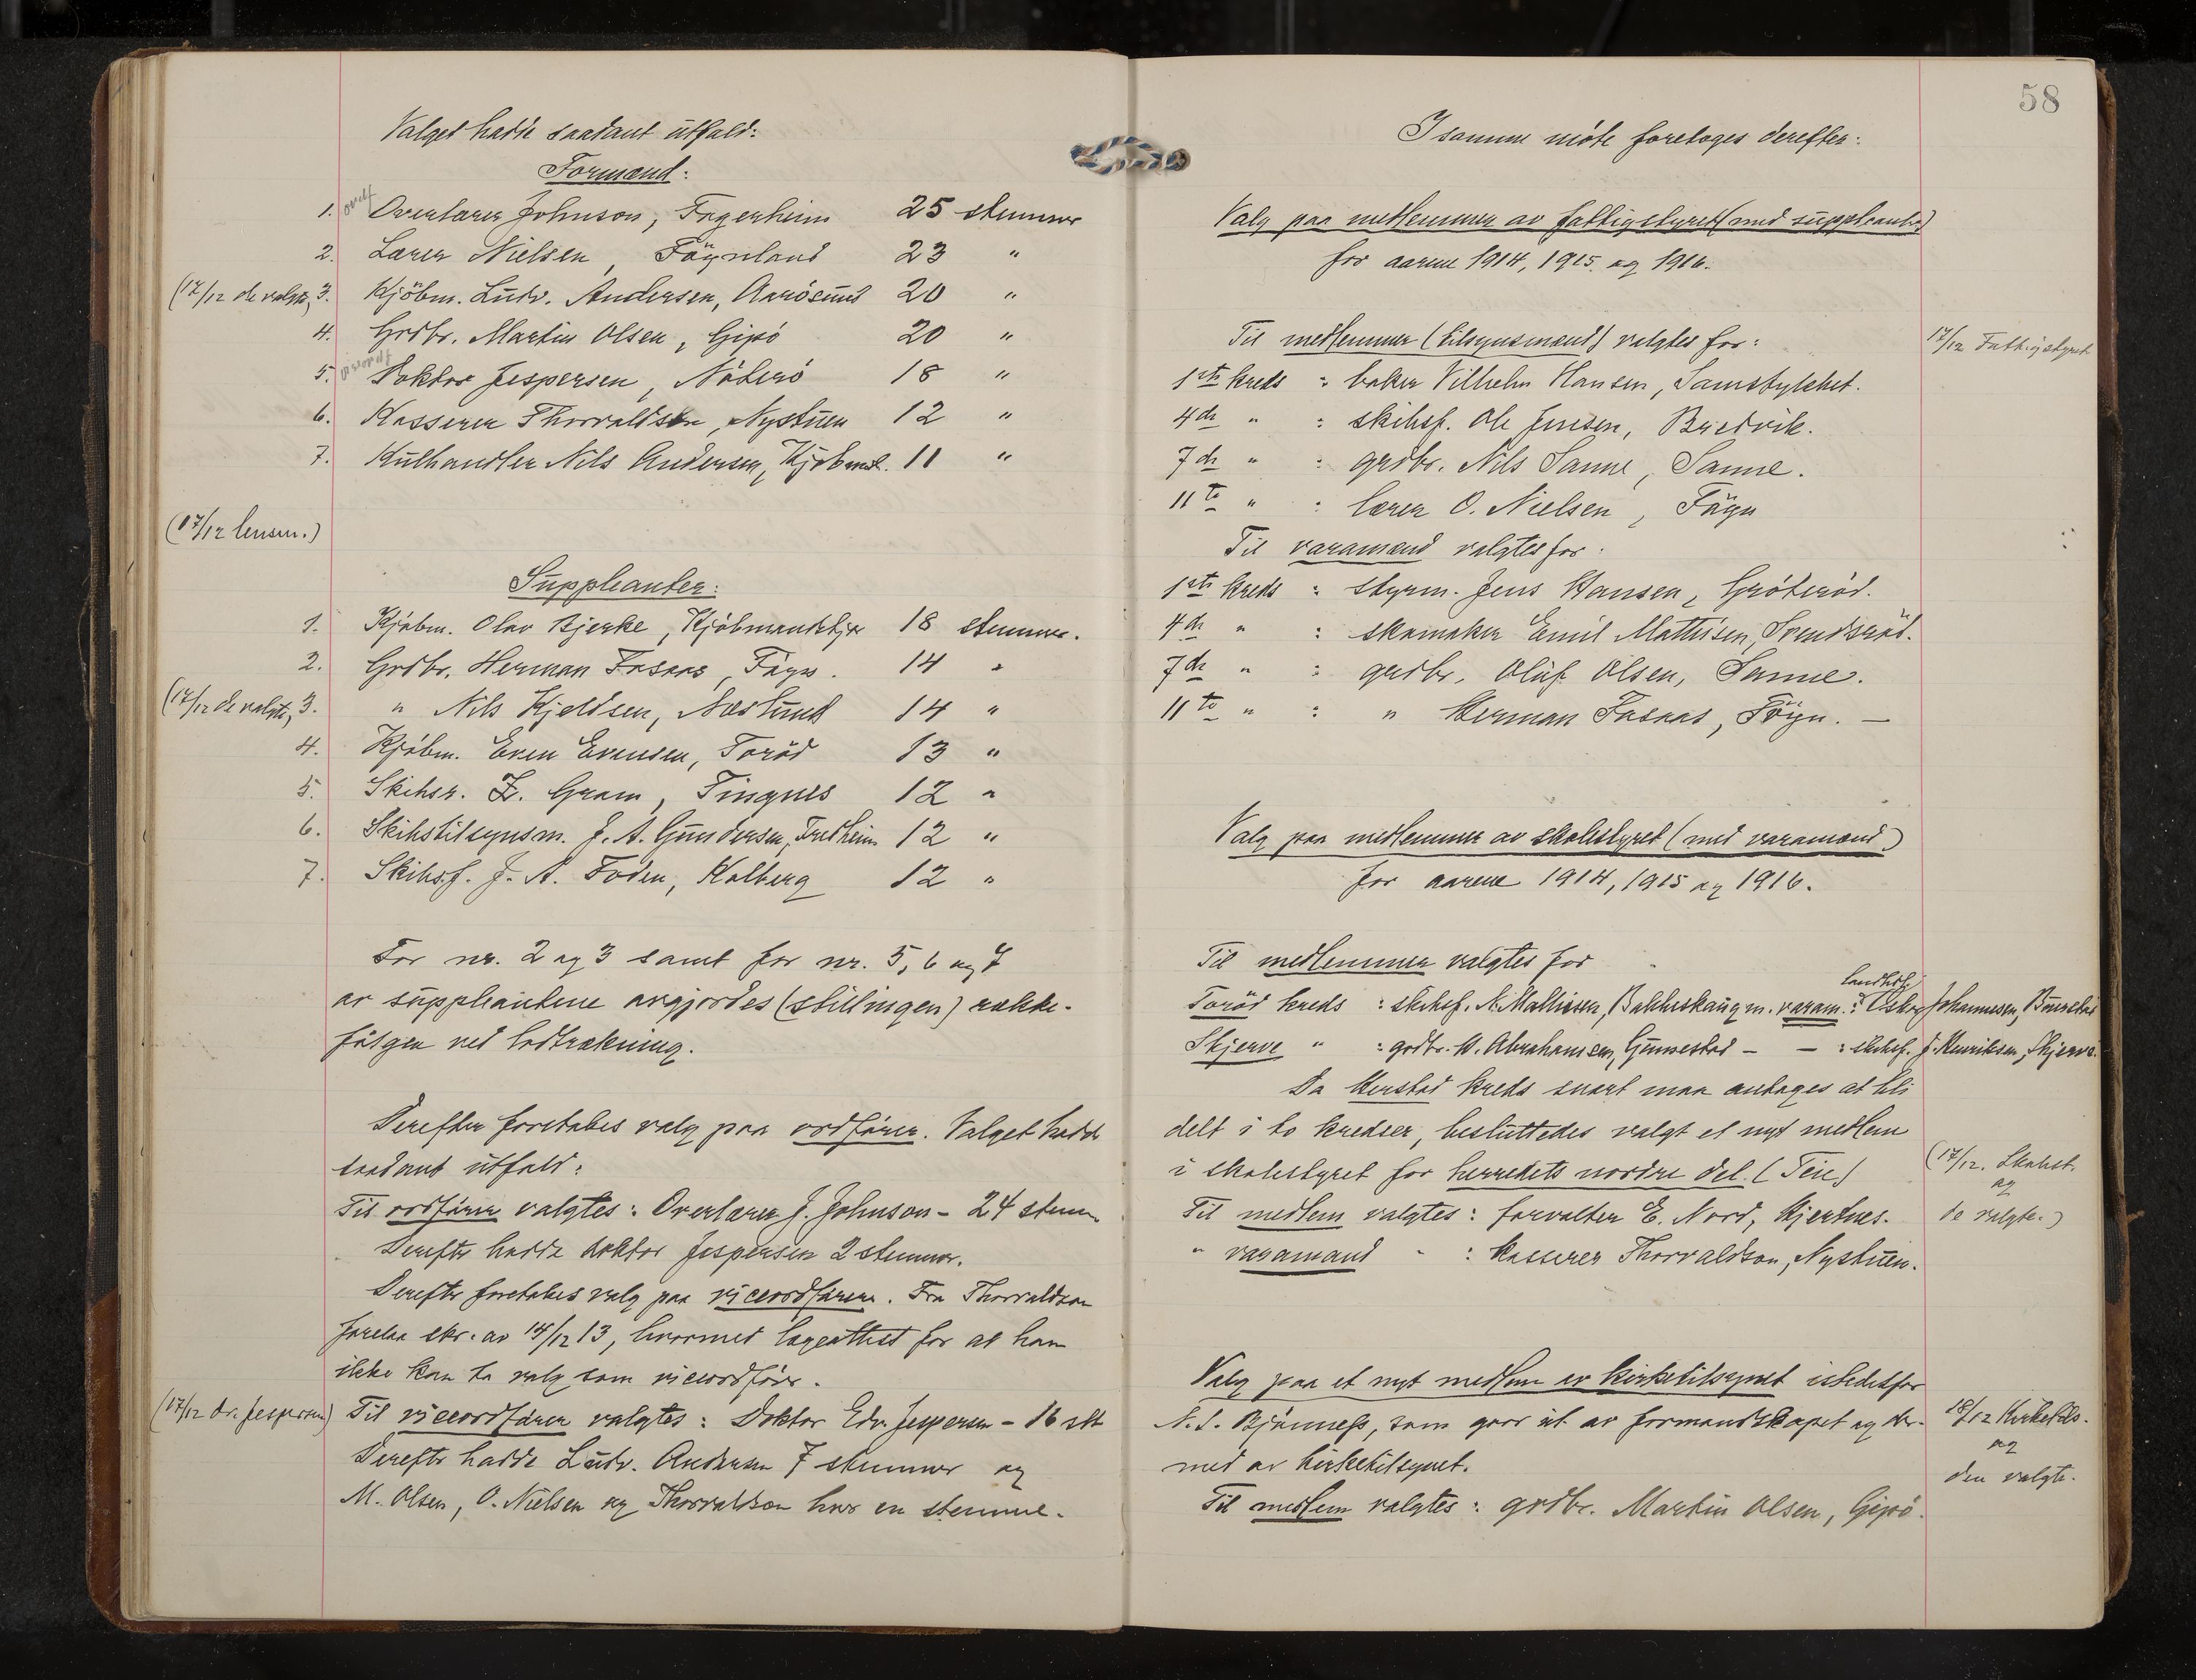 Valget hadde saadant utfald:
Formænd:
1. ordf Overlærer Johnson, Fagerheim 25 stemmer
2. Lærer Nielsen, Föynland 23 "
(17/12 de valgte) 3. Kjöbm. Ludv. Andersen, Aarösund 20 "
4. Grdbr. Martin Olsen, Gipö 20 "
5. viceordf Doktor Jespersen, Nöterö 18 "
6. Kasserer Thorvaldson, Nystuen 12 "
7. Kulhandler Nils Andersen, Kjöbmsk. 11 "
(17/12 lensm.)
Suppleanter:
1. Kjöbm. Olav Bjerke, Kjöbmandskjær 18 stemmer.
2. Grdbr. Herman Fosaas, Föyn. 14 "
(17/12 de valgte) 3. " Nils Kjeldsen, Næstund 14 "
4. Kjöbm. Even Evensen, Toröd 13 "
5. Skibsr. Z. Gram, Tingnes 12 "
6. Skibstilsynsm. J. A. Gundersen, Fredheim 12 "
7. Skibsf. J. A. Foden, Kolberg 12 "
For nr. 2 og 3 samt for nr. 5, 6 og 7
av suppleantene avgjordes (stillingen) række-
fölgen ved lodtrækning.
Derefter foretokes valg paa ordförer. Valget hadde
saadant utfald:
Til ordförer valgtes: Overlærer J. Johnson - 24 stemm
Derefter hadde doktor Jespersen 2 stemmer.
Derefter foretokes valg paa viceordförer. Fra Thorvaldson
forelaa skr. av 14/12 13, hvormed lægeattest for at han
ikke kan ta valg som viceordförer.
(17/12 dr. Jespersen) Til viceordförer valgtes: Doktor Edv. Jespersen - 16 stt
Derefter hadde Ludv. Andersen 7 stemmer og
M. Olsen, O. Nielsen og Thorvaldson hver en stemme.
58
I samme möte foretoges derefter:
Valg paa medlemmer av fattigstyret (med suppleanter)
for aarene 1914, 1915 og 1916.
Til medlemmer (tilsynsmænd) valgtes for:
17/12 Fattigstyret
1ste kreds : baker Vilhelm Hansen, Samstykket.
4de " : skibsf. Ole Jensen, Bredvik.
7de " : grdbr. Nils Sanne, Sanne.
11te " : lærer O. Nielsen, Föyn
Til varamænd valgtes for:
1ste kreds : styrm. Jens Hansen, Gröteröd.
4de " : skomaker Emil Mathisen, Svendsröd.
7de " : grdbr. Oluf Olsen, Sanne.
11te " : " Herman Fosaas, Föyn. —
Valg paa medlemmer av skolestyret (med varamænd)
for aarene 1914, 1915 og 1916.
Til medlemmer valgtes for
landhdl.
Toröd kreds : skibsf. N. Mathisen, Bakkeskaug m. varam.: Oskar Johannessen,
Skjerve " : grdbr. H. Abrahamsen, Gunnestad — — : skibsf. J. Henriksen, Skjerve.
Da Herstad kreds snart maa antages at bli
delt i to kredser, besluttedes valgt et nyt medlem
i skolestyret for herredets nordre del. (Teie)
(17/12. Skolest.
og
de valgte.)
Til medlem valgtes: forvalter E. Nord, Hjertnes.
" varamand " : Kasserer Thorvaldson, Nystuen.
Valg paa et nyt medlem av kirketilsynet istedetfor
N. S. Bjönness, som gaar ut av formandskapet og der-
med av kirketilsynet.
18/12 Kirketils.
og
den valgte.
Til medlem valgtes: grdbr. Martin Olsen, Gipö.